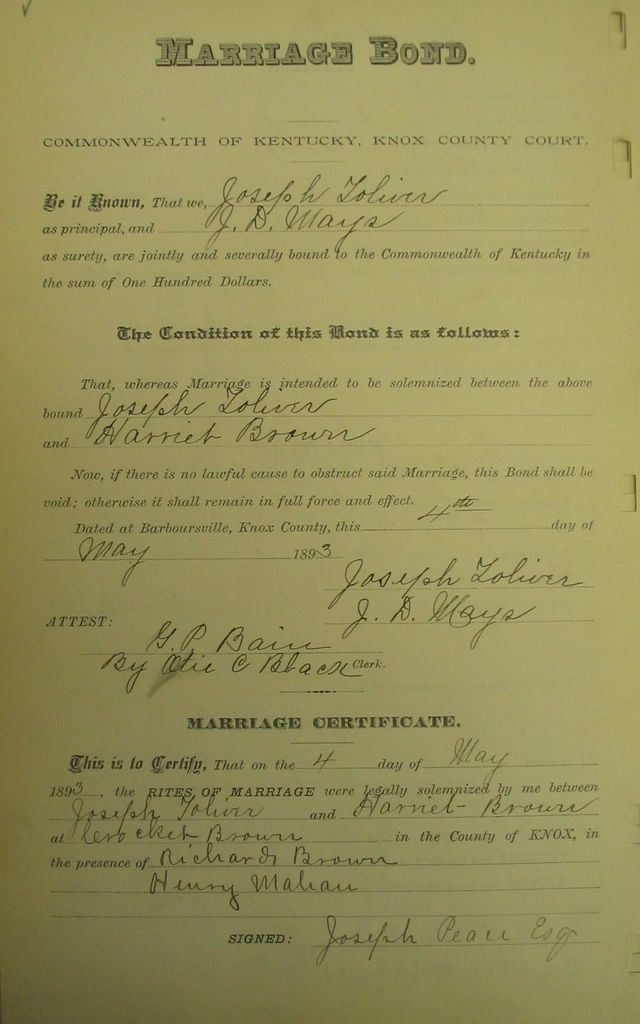 MARRIAGE BOND.
COMMONWEALTH OF KENTUCKY, KNOX COUNTY COURT.
Be it Known, That we, Joseph Toliver
as principal, and J. D. Mays
as surety, are jointly and severally bound to the Commonwealth of Kentucky in
the sum of One Hundred Dollars.
The Condition of this Bond is as follows:
That, whereas Marriage is intended to be solemnized between the above
bound Joseph Toliver
and Harriet Brown
Now, if there is no lawful cause to obstruct said Marriage, this Bond shall be
void; otherwise it shall remain in full force and effect.
Dated at Barboursville, Knox County, this 4th day of
May 1893
Joseph Toliver
J. D. Mays
ATTEST:
G. P. Bain
By C Black Clerk.
MARRIAGE CERTIFICATE.
This is to Certify, That on the 4 day of May
1893, the RITES OF MARRIAGE were legally solemnized by me between
Joseph Toliver and Harriet Brown
at Crocket Brown in the County of KNOX, in
the presence of Richard Brown
Henry Mahan
SIGNED: Joseph Esq